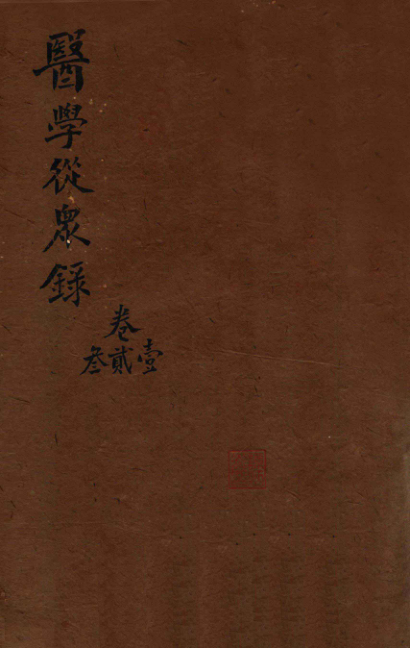 醫學從衆錄
卷
壹貳叁